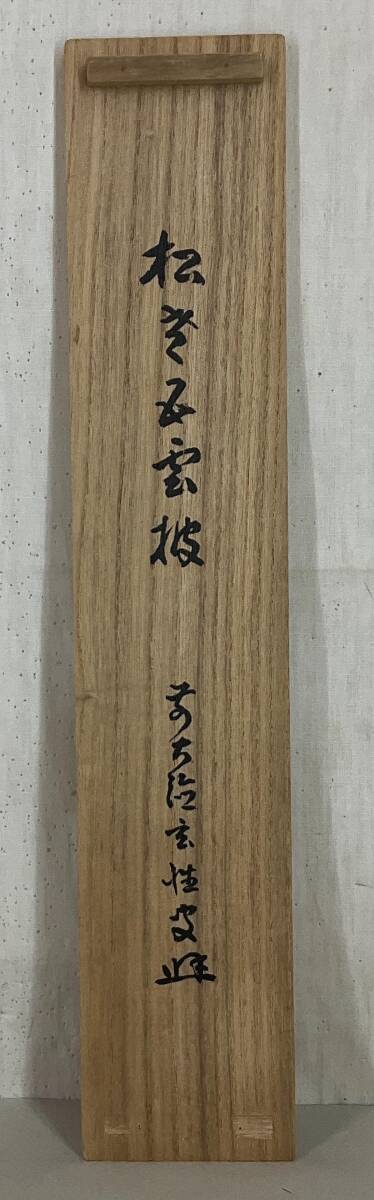 松老五雲披
前大徳玄性叟